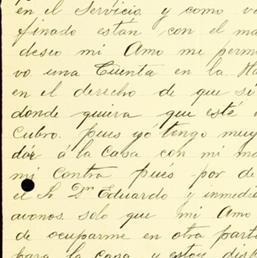 en el Servicio y como v
finado estan con el ma
deseo mi Amo me perm
vo una Cuenta en la Ha
en el derecho de que si
donde quiera que esté
Cubro. pues yo tengo muy
dár á la Casa con mi m
mi Contra pues por de
el Sr Dn Eduardo y inmedi
avonos solo que mi Amo
de ocuparme en otra part
para la casa y estoy dis